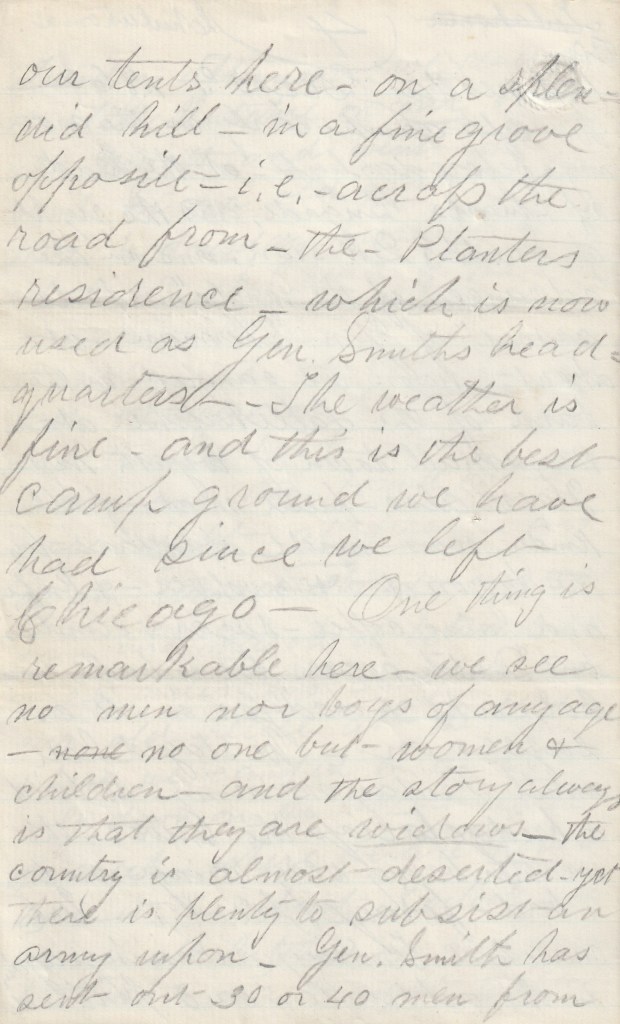 our tents here - on a splen=
did hill - in a fine grove
opposite - i.e. - across the
road from - the - Planters
residence - which is now
used as Gen. Smiths head=
quarters - - The weather is
fine - and this is the best
camp ground we have
had since we left
Chicago - One thing is
remarkable here - we see
no men nor boys of any age
- none no one but - women &
children - and the story always
is that they are widows - the
country is almost deserted - yet
there is plenty to subsist an
army upon - Gen. Smith has
sent out 30 or 40 men from